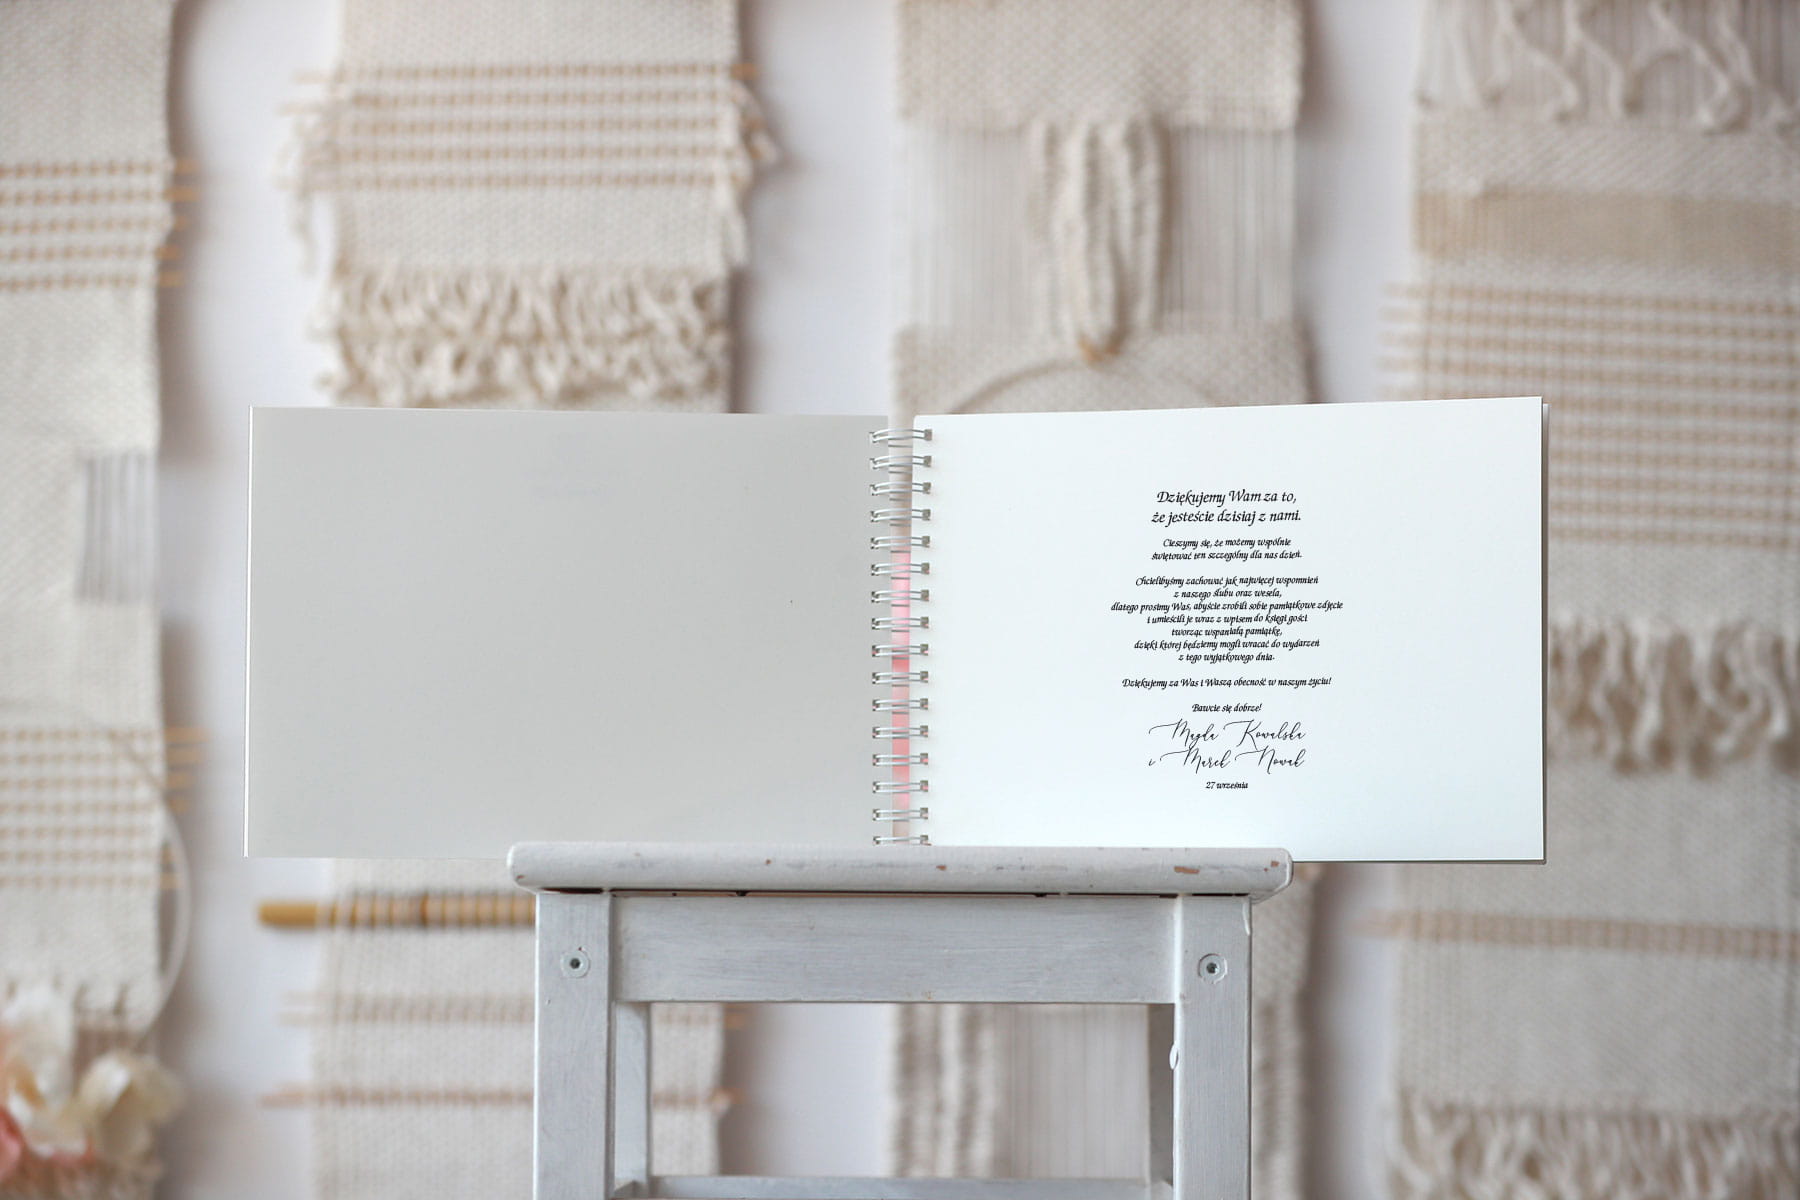 Dziękujemy Wam za to,
że jesteście dzisiaj z nami.
Cieszymy się, że możemy wspólnie
świętować ten szczególny dla nas dzień.
Chcielibyśmy zachować jak najwięcej wspomnień
z naszego ślubu oraz wesela,
dlatego prosimy Was, abyście zrobili sobie pamiątkowe zdjęcie
i umieścili je wraz z wpisem do księgi gości
tworząc wspaniałą pamiątkę,
dzięki której będziemy mogli wracać do wydarzeń
z tego wyjątkowego dnia.
Dziękujemy za Was i Waszą obecność w naszym życiu!
Bawcie się dobrze!
Magda Kowalska
i Marek Nowak
27 września